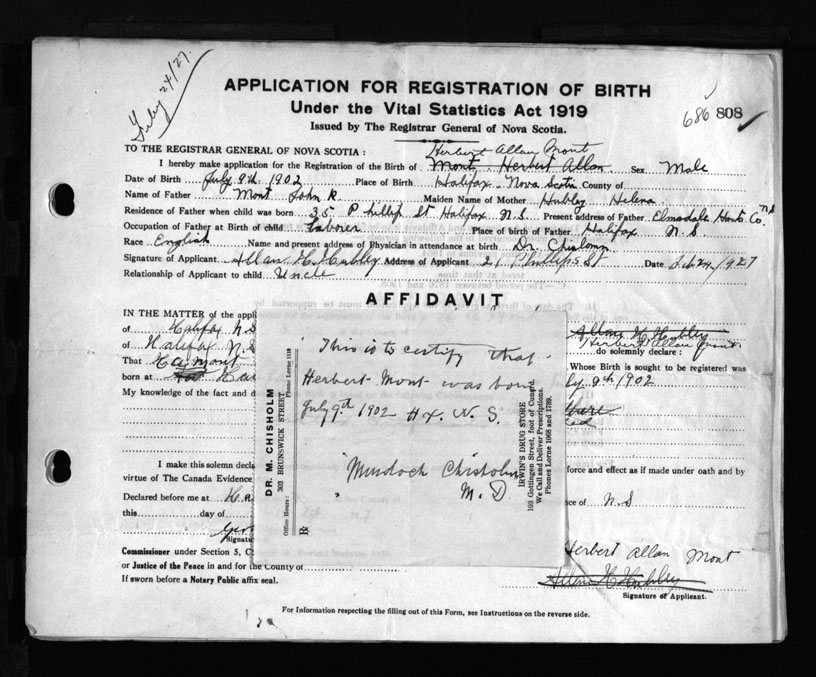 Feby 24/27.
APPLICATION FOR REGISTRATION OF BIRTH
Under the Vital Statistics Act 1919
686 808
Issued by The Registrar General of Nova Scotia.
TO THE REGISTRAR GENERAL OF NOVA SCOTIA:
Herbert Allan Mont
I hereby make application for the Registration of the Birth of Mont, Herbert Allan Sex Male
Date of Birth July 9th 1902 Place of Birth Halifax Nova Scotia County of
Name of Father Mont John R Maiden Name of Mother Hubley Helena
Residence of Father when child was born 35 Phillip St Halifax N.S. Present address of Father Elmsdale Hants Co. N S
Occupation of Father at Birth of child Laborer Place of birth of Father Halifax N. S.
Race English Name and present address of Physician in attendance at birth Dr. Chisholm
Signature of Applicant Allan H. Hubley Address of Applicant 21 Phillips St Date Feb 24/1927
Relationship of Applicant to child Uncle
AFFIDAVIT
IN THE MATTER of the appli
of Halifax N.S
of Halifax N.S
That H a Mont
born at Ha
My knowledge of the fact and d
Allan H. Hubley
Herbert Allan Mont
do solemnly declare:
Whose Birth is sought to be registered was
ly 9th 1902
This is to certify that
Herbert Mont was born
July 9th 1902 Hx. N. S.
Murdoch Chisholm
M. D
DR. M. CHISHOLM
303 BRUNSWICK STREET
Phone Lorne 1118
Office Hours:
℞
IRWIN'S DRUG STORE
103 Gottingen Street, foot of Cunard.
We Call and Deliver Prescriptions.
Phones Lorne 1068 and 1789.
I make this solemn decla
force and effect as if made under oath and by
virtue of The Canada Evidence
Declared before me at Ha
ce of N.S
this day of
Geo
Signatu
Commissioner under Section 5, C
or Justice of the Peace in and for the County of
If sworn before a Notary Public affix seal.
Herbert Allan Mont
Allan H Hubley
Signature of Applicant.
For Information respecting the filling out of this Form, see Instructions on the reverse side.